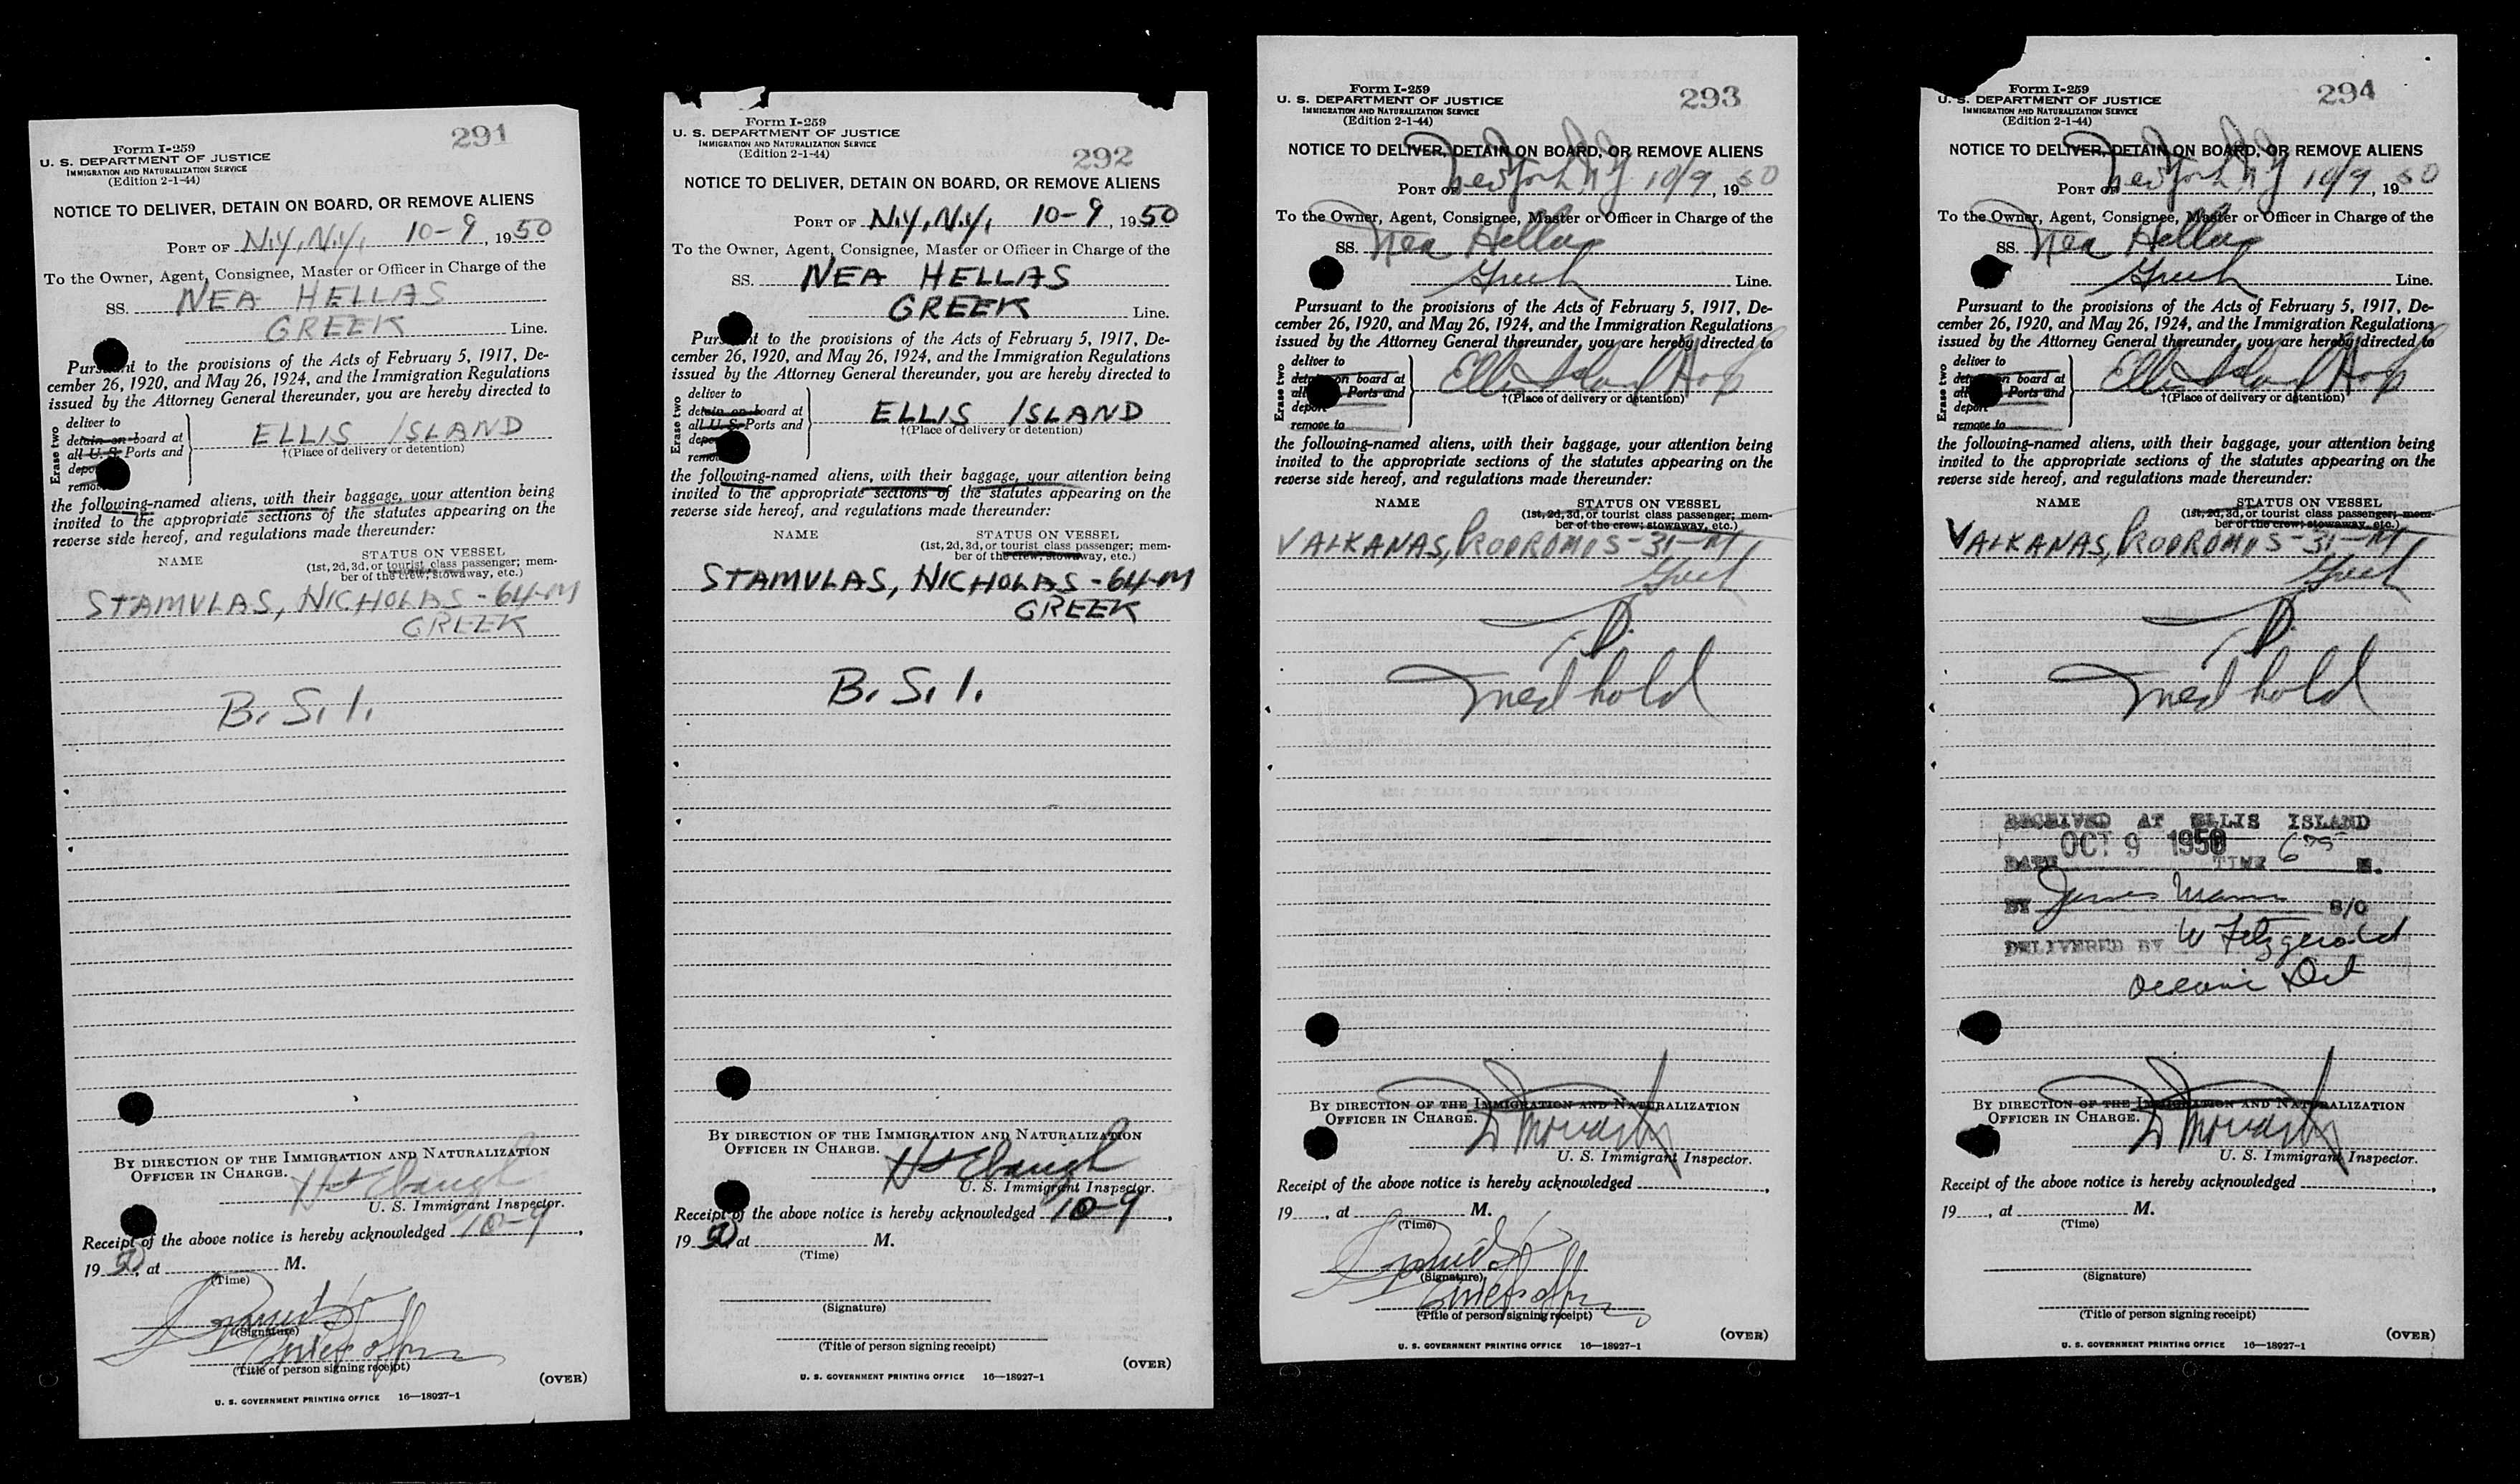 291
Form I-259
U. S. DEPARTMENT OF JUSTICE
IMMIGRATION AND NATURALIZATION SERVICE
(Edition 2-1-44)
NOTICE TO DELIVER, DETAIN ON BOARD, OR REMOVE ALIENS
PORT OF N.Y, N.Y, 10-9, 1950
To the Owner, Agent, Consignee, Master or Officer in Charge of the
SS. NEA HELLAS
GREEK Line.
Pursuant to the provisions of the Acts of February 5, 1917, De-
cember 26, 1920, and May 26, 1924, and the Immigration Regulations
issued by the Attorney General thereunder, you are hereby directed to
Erase two
deliver to
detain on board at
all U. S. Ports and
remo
ELLIS ISLAND
†(Place of delivery or detention)
the following-named aliens, with their baggage, your attention being
invited to the appropriate sections of the statutes appearing on the
reverse side hereof, and regulations made thereunder:
NAME STATUS ON VESSEL
(1st, 2d, 3d, or tourist class passenger; mem-
ber of the crew; stowaway, etc.)
STAMVLAS, NICHOLAS - 64-M
GREEK
B. S. I.
BY DIRECTION OF THE IMMIGRATION AND NATURALIZATION
OFFICER IN CHARGE.
U. S. Immigrant Inspector.
Receipt of the above notice is hereby acknowledged 10-9,
1950, at M.
(Time)
(Signature)
Chief Offr
(Title of person signing receipt)
(OVER)
U. S. GOVERNMENT PRINTING OFFICE 16—18927-1
Form I-259
U. S. DEPARTMENT OF JUSTICE
IMMIGRATION AND NATURALIZATION SERVICE
(Edition 2-1-44)
292
NOTICE TO DELIVER, DETAIN ON BOARD, OR REMOVE ALIENS
PORT OF N.Y, N.Y, 10-9, 1950
To the Owner, Agent, Consignee, Master or Officer in Charge of the
SS. NEA HELLAS
GREEK Line.
Pursuant to the provisions of the Acts of February 5, 1917, De-
cember 26, 1920, and May 26, 1924, and the Immigration Regulations
issued by the Attorney General thereunder, you are hereby directed to
Erase two
deliver to
detain on board at
all U. S. Ports and
remo
ELLIS ISLAND
†(Place of delivery or detention)
the following-named aliens, with their baggage, your attention being
invited to the appropriate sections of the statutes appearing on the
reverse side hereof, and regulations made thereunder:
NAME STATUS ON VESSEL
(1st, 2d, 3d, or tourist class passenger; mem-
ber of the crew; stowaway, etc.)
STAMVLAS, NICHOLAS - 64-M
GREEK
B. S. I.
BY DIRECTION OF THE IMMIGRATION AND NATURALIZATION
OFFICER IN CHARGE.
U. S. Immigrant Inspector.
Receipt of the above notice is hereby acknowledged 10-9,
1950, at M.
(Time)
(Signature)
(Title of person signing receipt)
(OVER)
U. S. GOVERNMENT PRINTING OFFICE 16—18927-1
Form I-259
U. S. DEPARTMENT OF JUSTICE
IMMIGRATION AND NATURALIZATION SERVICE
(Edition 2-1-44)
293
NOTICE TO DELIVER, DETAIN ON BOARD, OR REMOVE ALIENS
PORT OF New York NY 10/9, 1950
To the Owner, Agent, Consignee, Master or Officer in Charge of the
SS. Nea Hellas
Greek Line.
Pursuant to the provisions of the Acts of February 5, 1917, De-
cember 26, 1920, and May 26, 1924, and the Immigration Regulations
issued by the Attorney General thereunder, you are hereby directed to
Erase two
deliver to
detain on board at
all U. S. Ports and
deport
remove to
Ellis Island Hosp
†(Place of delivery or detention)
the following-named aliens, with their baggage, your attention being
invited to the appropriate sections of the statutes appearing on the
reverse side hereof, and regulations made thereunder:
NAME STATUS ON VESSEL
(1st, 2d, 3d, or tourist class passenger; mem-
ber of the crew; stowaway, etc.)
VALKANAS, PRODROMOS - 31 - M
Greek
med hold
BY DIRECTION OF THE IMMIGRATION AND NATURALIZATION
OFFICER IN CHARGE.
U. S. Immigrant Inspector.
Receipt of the above notice is hereby acknowledged ,
19 , at M.
(Time)
(Signature)
Chief Offr
(Title of person signing receipt)
(OVER)
U. S. GOVERNMENT PRINTING OFFICE 16—18927-1
Form I-259
U. S. DEPARTMENT OF JUSTICE
IMMIGRATION AND NATURALIZATION SERVICE
(Edition 2-1-44)
294
NOTICE TO DELIVER, DETAIN ON BOARD, OR REMOVE ALIENS
PORT OF New York NY 10/9, 1950
To the Owner, Agent, Consignee, Master or Officer in Charge of the
SS. Nea Hellas
Greek Line.
Pursuant to the provisions of the Acts of February 5, 1917, De-
cember 26, 1920, and May 26, 1924, and the Immigration Regulations
issued by the Attorney General thereunder, you are hereby directed to
Erase two
deliver to
detain on board at
all U. S. Ports and
deport
remove to
Ellis Island Hosp
†(Place of delivery or detention)
the following-named aliens, with their baggage, your attention being
invited to the appropriate sections of the statutes appearing on the
reverse side hereof, and regulations made thereunder:
NAME STATUS ON VESSEL
(1st, 2d, 3d, or tourist class passenger; mem-
ber of the crew; stowaway, etc.)
VALKANAS, PRODROMOS - 31 - M
Greek
med hold
RECEIVED AT ELLIS ISLAND
DATE OCT 9 1950 TIME M.
BY James Mann S/O
DELIVERED BY W Fitzgerald
Oceanic Det
BY DIRECTION OF THE IMMIGRATION AND NATURALIZATION
OFFICER IN CHARGE.
U. S. Immigrant Inspector.
Receipt of the above notice is hereby acknowledged ,
19 , at M.
(Time)
(Signature)
(Title of person signing receipt)
(OVER)
U. S. GOVERNMENT PRINTING OFFICE 16—18927-1